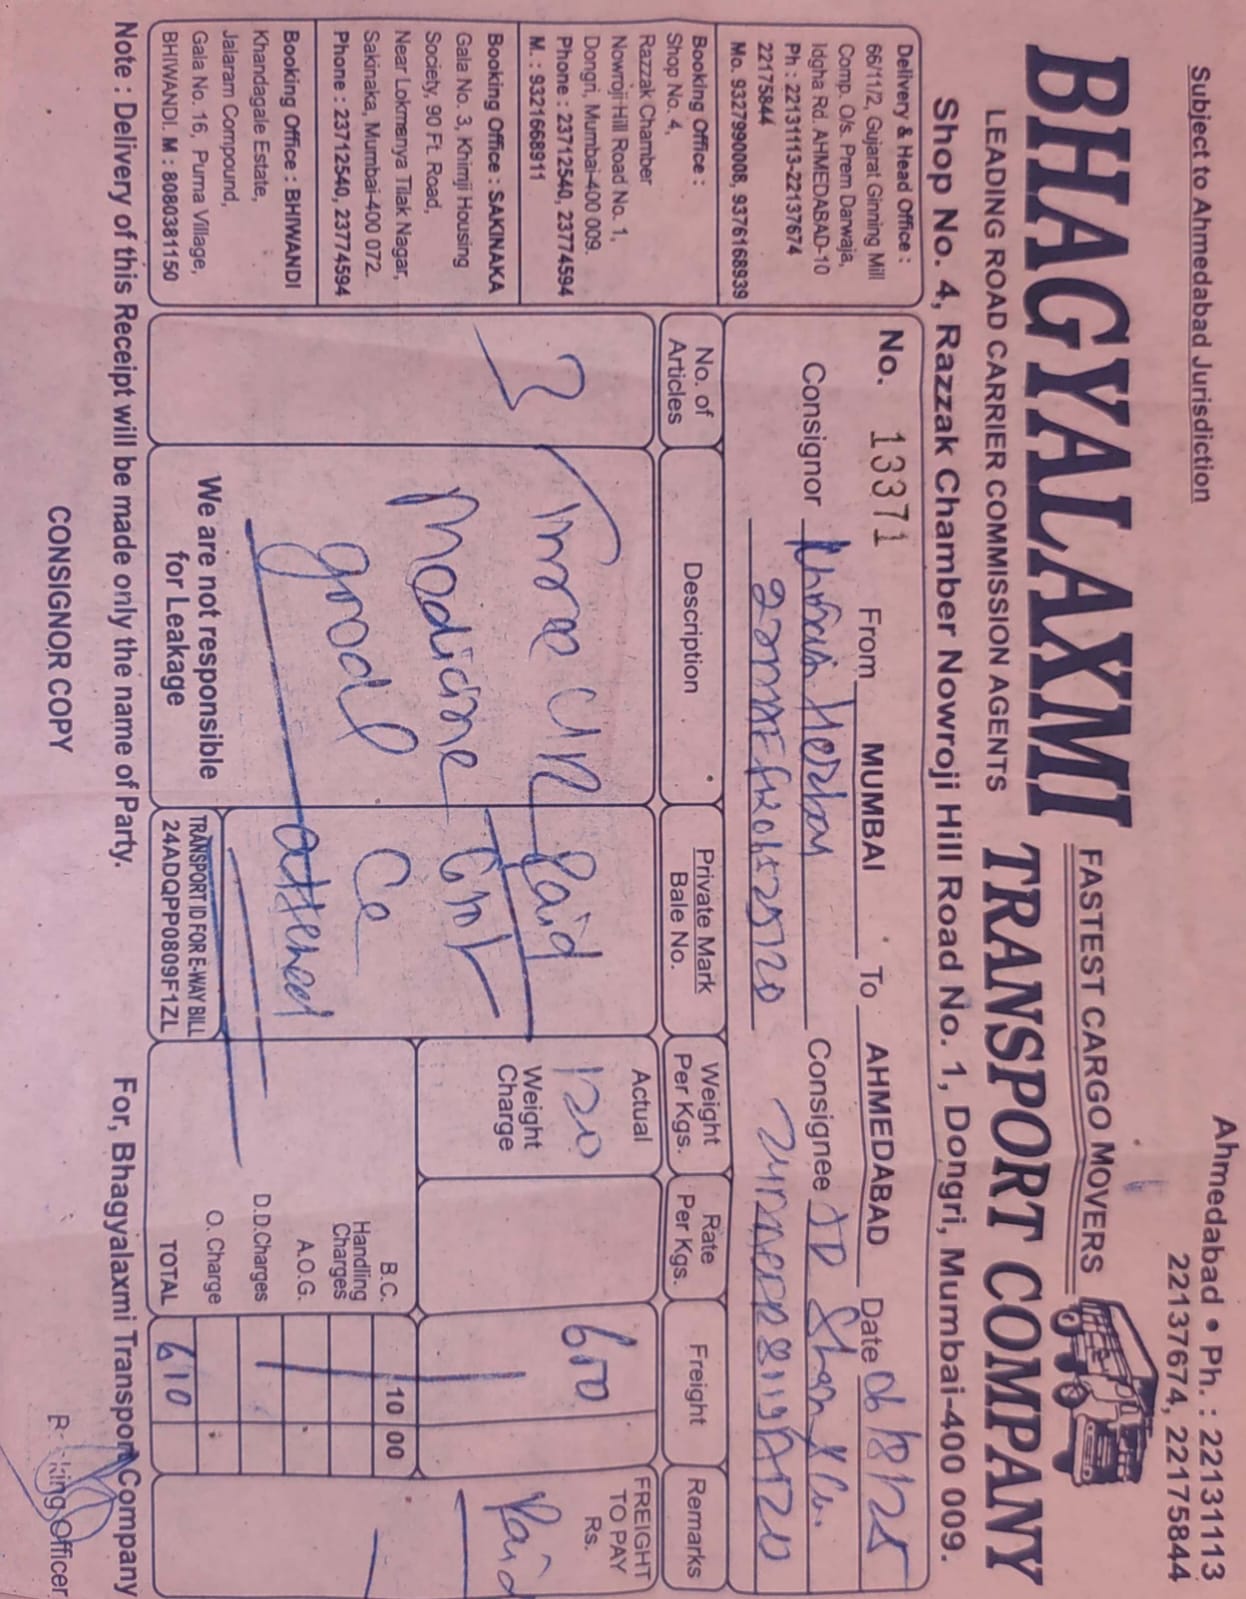 Subject to Ahmedabad Jurisdiction
Ahmedabad • Ph. : 22131113
22137674, 22175844
BHAGYALAXMI
FASTEST CARGO MOVERS
LEADING ROAD CARRIER COMMISSION AGENTS
TRANSPORT COMPANY
Shop No. 4, Razzak Chamber Nowroji Hill Road No. 1, Dongri, Mumbai-400 009.
Delivery & Head Office :
66/11/2, Gujarat Ginning Mill
Comp. O/s. Prem Darwaja,
Idgha Rd. AHMEDABAD-10
Ph : 22131113-22137674
22175844
Mo. 9327990008, 9376168939
Booking Office :
Shop No. 4,
Razzak Chamber
Nowroji Hill Road No. 1,
Dongri, Mumbai-400 009.
Phone : 23712540, 23774594
M. : 9321668911
Booking Office : SAKINAKA
Gala No. 3, Khimji Housing
Society, 90 Ft. Road,
Near Lokmanya Tilak Nagar,
Sakinaka, Mumbai-400 072.
Phone : 23712540, 23774594
Booking Office : BHIWANDI
Khandagale Estate,
Jalaram Compound,
Gala No. 16, Purna Village,
BHIWANDI. M : 8080381150
No. 13371 From MUMBAI To AHMEDABAD Date 06/8/25
Consignor Consignee JD
No. of Articles
Description
Private Mark
Bale No.
Weight Per Kgs.
Rate Per Kgs.
Freight
Remarks
3
Three
Medicine
good
Paid
Ce
attened
Actual
120
Weight Charge
600
FREIGHT TO PAY Rs.
Paid
B.C. 10 00
Handling Charges
A.O.G.
D.D.Charges
O. Charge
TOTAL 610
We are not responsible
for Leakage
TRANSPORT ID FOR E-WAY BILL
24ADQPP0809F1ZL
Note : Delivery of this Receipt will be made only the name of Party.
For, Bhagyalaxmi Transport Company
CONSIGNOR COPY
Officer